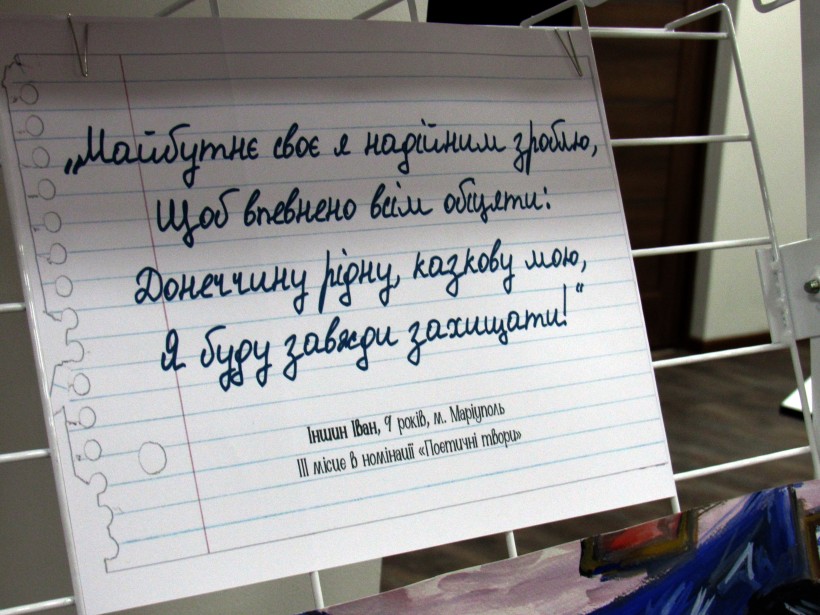 „Майбутнє своє я надійним зроблю,
Щоб впевнено всім обіцяти:
Донеччину рідну, казкову мою,
Я буду завжди захищати!“
Іншин Іван, 9 років, м. Маріуполь
III місце в номінації «Поетичні твори»